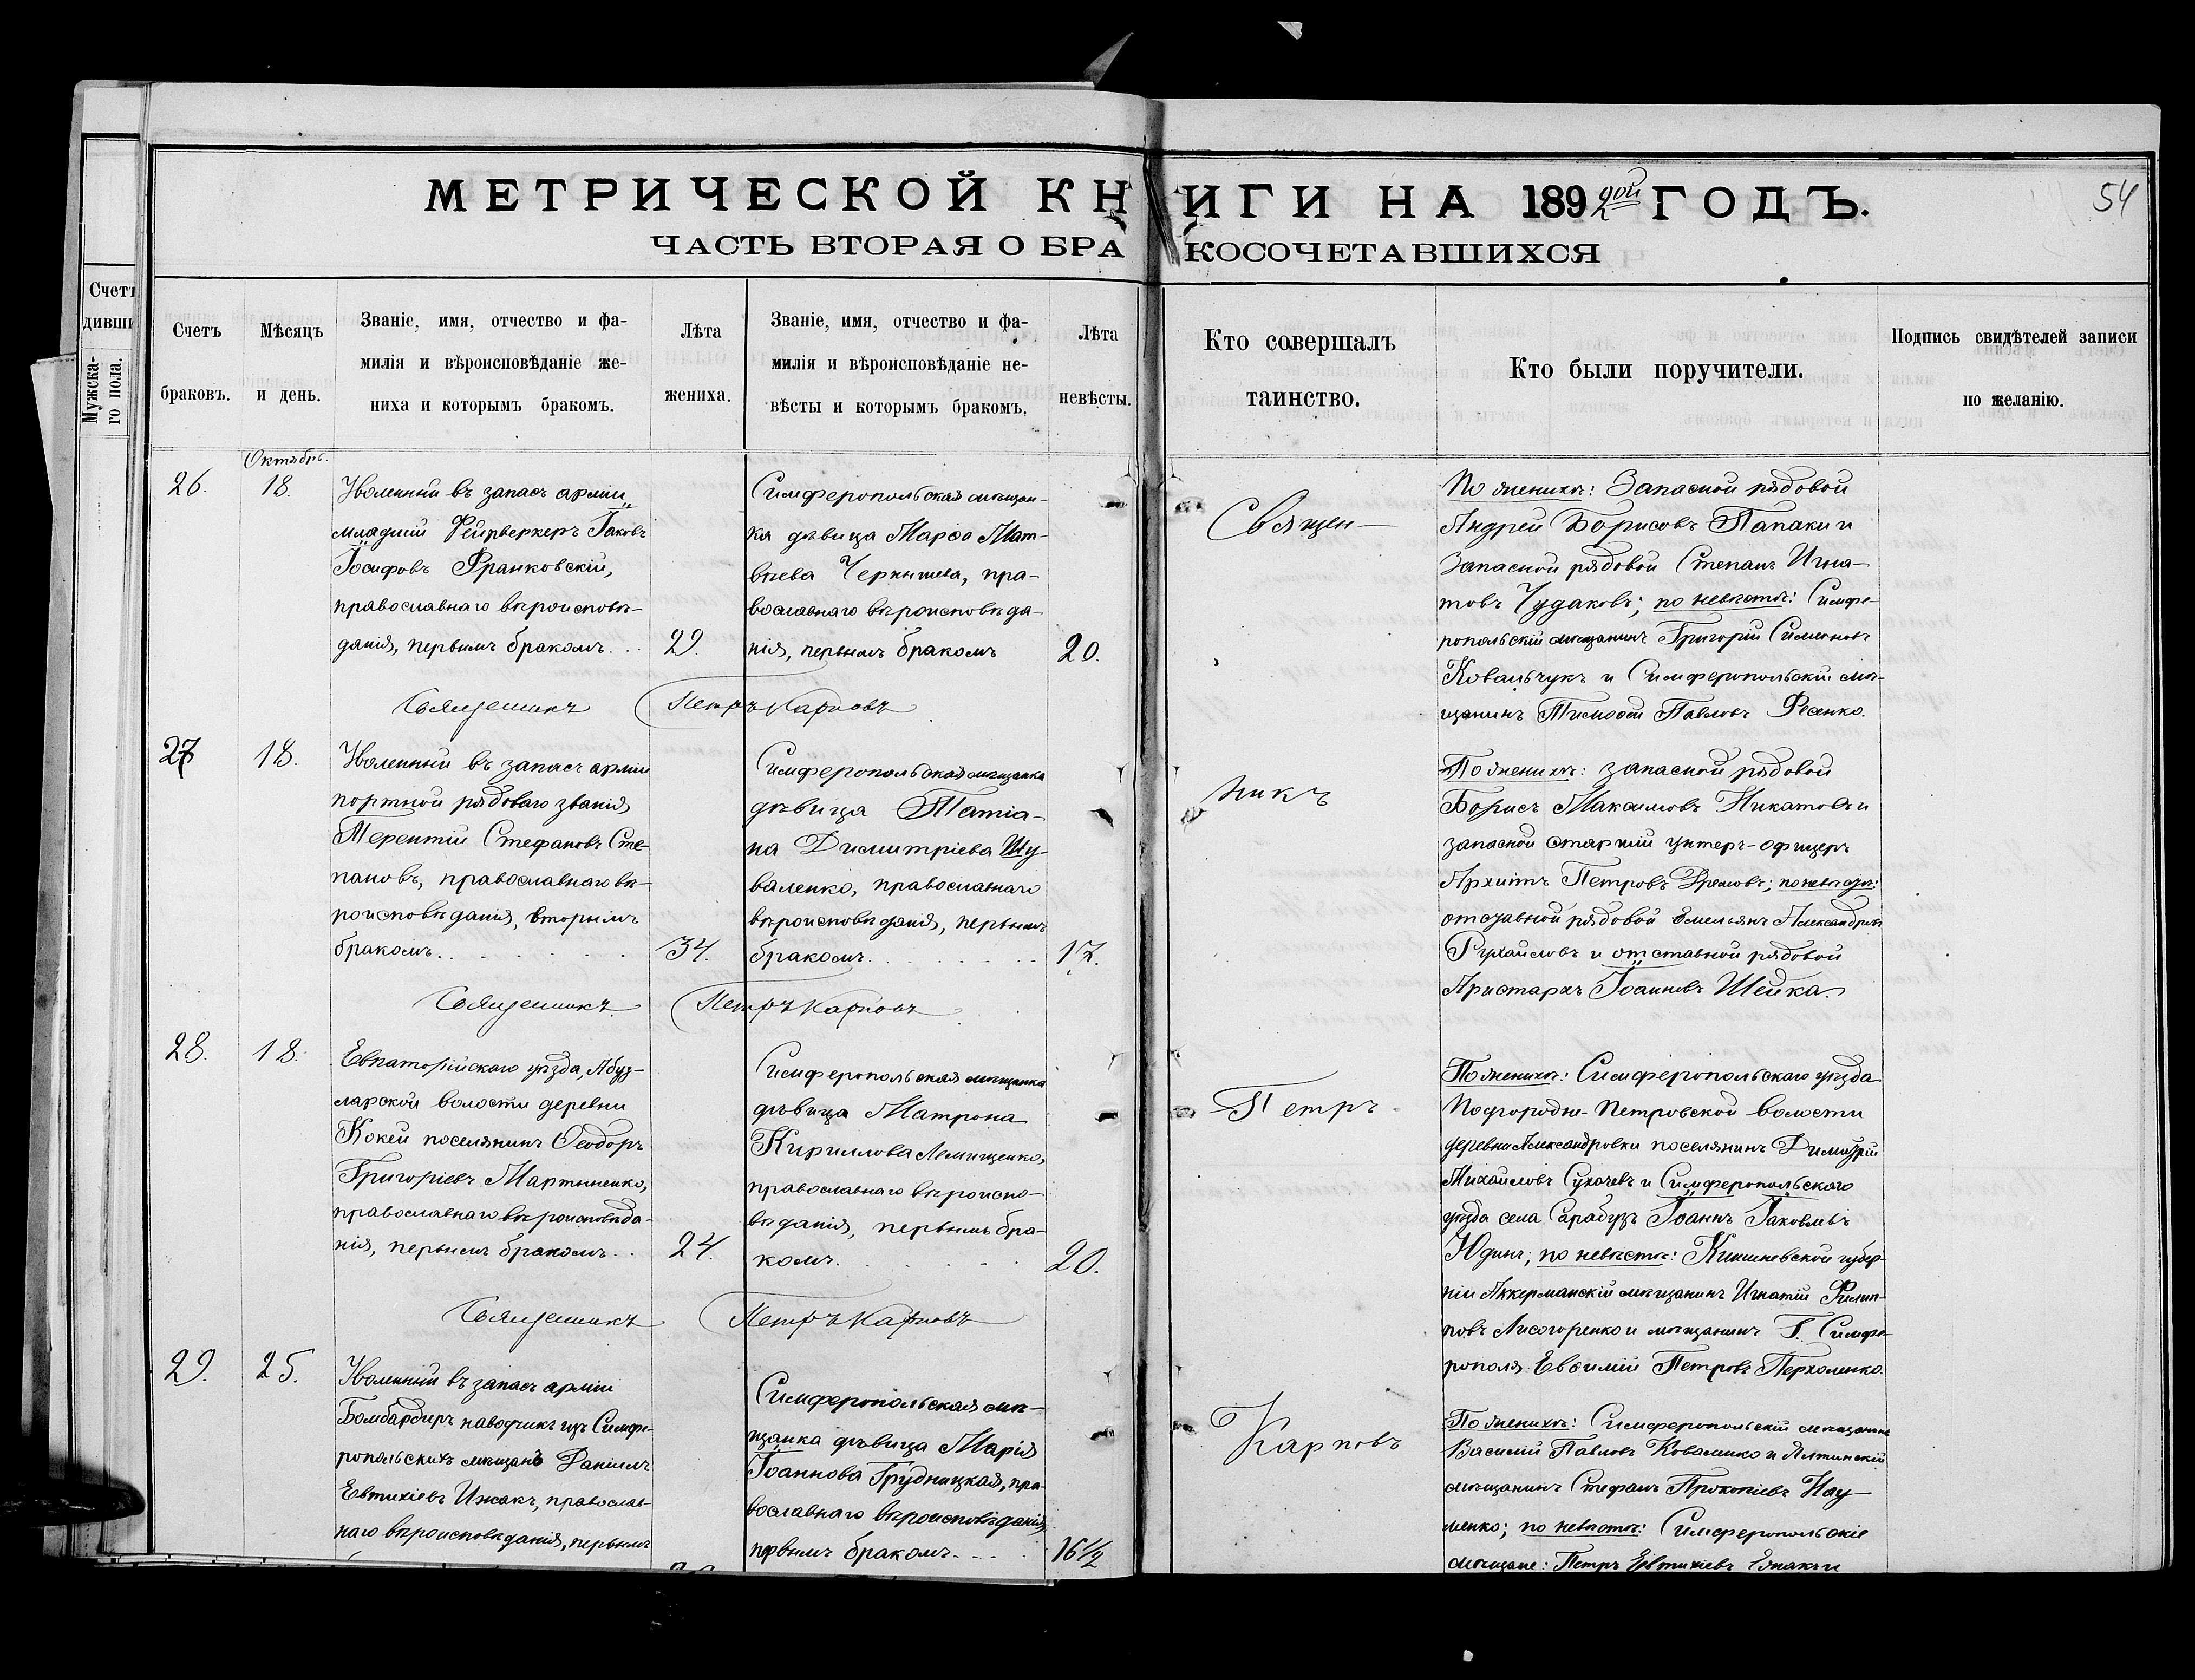 МЕТРИЧЕСКОЙ КНИГИ НА 1892дой ГОДЪ.
54
ЧАСТЬ ВТОРАЯ О БРАКОСОЧЕТАВШИХСЯ
Счет
дивши
Мужска-
го пола.
Счетъ
браковъ.
Мѣсяцъ
и день.
Званіе, имя, отчество и фа-
милія и вѣроисповѣданіе же-
ниха и которымъ бракомъ.
Лѣта
жениха.
Званіе, имя, отчество и фа-
милія и вѣроисповѣданіе не-
вѣсты и которымъ бракомъ.
Лѣта
невѣсты.
Кто совершалъ
таинство.
Кто были поручители.
Подпись свидѣтелей записи
по желанію.
Октябрь.
26.
18.
Уволенный въ запасъ арміи
младшій Фейрверкеръ Іаковъ
Іосифовъ Франковскій,
православнаго вѣроисповѣ-
данія, первымъ бракомъ...
29.
Симферопольская мѣщан-
ка дѣвица Марѳа Мат-
вѣева Чернышева, пра-
вославнаго вѣроисповѣда-
нія, первымъ бракомъ
20.
Священ-
По женихѣ: Запасной рядовой
Андрей Борисовъ Папаки и
Запасной рядовой Степанъ Игна-
товъ Чудаковъ; по невѣстѣ: Симфе-
ропольскій мѣщанинъ Григорій Симеоновъ
Ковальчукъ и Симферопольскій мѣ-
щанинъ Тимоѳей Павловъ Фесенко.
Священникъ Петръ Карповъ
27
18.
Уволенный въ запасъ арміи
портной рядоваго званія
Терентій Стефановъ Сте-
пановъ, православнаго вѣ-
роисповѣданія, вторымъ
бракомъ.
34.
Симферопольская мѣщанка
дѣвица Татіа-
на Димитріева Шу-
валенко, православнаго
вѣроисповѣданія, первымъ
бракомъ.
17.
никъ
По женихѣ: запасной рядовой
Борисъ Максимовъ Никатовъ и
запасной старшій унтеръ-офицеръ
Архипъ Петровъ; по невѣстѣ:
отставной рядовой Емельянъ Александровъ
и отставной рядовой
Аристархъ Іоанновъ Шейка.
Священникъ Петръ Карповъ
28.
18.
Евпаторійскаго уѣзда, Абуз-
ларской волости деревни
Кокей поселянинъ Ѳеодоръ
Григоріевъ Мартыненко,
православнаго вѣроисповѣда-
нія, первымъ бракомъ..
24.
Симферопольская мѣщанка
дѣвица Матрона
Кириллова Лемищенко,
православнаго вѣроиспо-
вѣданія, первымъ бра-
комъ.
20.
Петръ
По женихѣ: Симферопольскаго уѣзда
Подгородне-Петровской волости
деревни Александровки поселянинъ Димитрій
Михайловъ Сухачевъ и Симферопольскаго
уѣзда села Сарабузъ Іоаннъ Іаковлевъ
Юдинъ; по невѣстѣ: Кишиневской губер-
ніи Аккерманскій мѣщанинъ Игнатій Филип-
повъ Лисогоренко и мѣщанинъ Г. Симфе-
рополя Евѳимій Петровъ Перхоменко.
Священникъ Петръ Карповъ
29.
25.
Уволенный въ запасъ арміи
Бомбардиръ наводчикъ изъ Симфе-
ропольскихъ мѣщанъ Даніилъ
Евтихіевъ Ижакъ, православ-
наго вѣроисповѣданія, первымъ
Симферопольская мѣ-
щанка дѣвица Марія
Іоаннова Грудницкая, пра-
вославнаго вѣроисповѣданія,
первымъ бракомъ.
16 1/2
Карповъ
По женихѣ: Симферопольскій мѣщанинъ
Василій Павловъ Коваленко и Ялтинскій
мѣщанинъ Стефанъ Прокопіевъ Нау-
менко; по невѣстѣ: Симферопольскіе
мѣщане: Петръ Евтихіевъ Ежакъ и